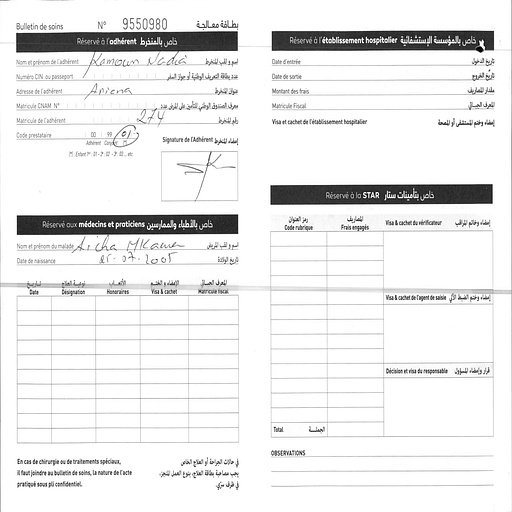 Bulletin de soins N° 9550980 بطاقة معالجة
Réservé à l'adhérent خاص بالمنخرط
Nom et prénom de l'adhérent Kamoun Nadia اسم و لقب المنخرط
Numéro CIN ou passeport عدد بطاقة التعريف الوطنية أو جواز السفر
Adresse de l'adhérent Ariana عنوان المنخرط
Matricule CNAM N° معرف الصندوق الوطني للتأمين على المرض عدد
Matricule de l'adhérent 274 رقم المنخرط
Code prestataire 00 99 01 Signature de l'Adhérent إمضاء المنخرط
Adhérent Conjoint (*)
(*) : Enfant 1er : 01 - 2e : 02 - 3e : 03 ... etc
Réservé aux médecins et praticiens خاص بالأطباء والممارسين
Nom et prénom du malade Aicha اسم و لقب المريض
Date de naissance 25-07-2005 تاريخ الولادة
تاريخ نوعية العلاج الأتعاب الإمضاء و الختم المعرف الجبائي
Date Désignation Honoraires Visa & cachet Matricule fiscal
En cas de chirurgie ou de traitements spéciaux,
il faut joindre au bulletin de soins, la nature de l'acte
pratiqué sous pli confidentiel.
في حالات الجراحة أو العلاج الخاص
يجب مصاحبة بطاقة العلاج، بنوع العمل المنجز،
في ظرف سري.
Réservé à l'établissement hospitalier خاص بالمؤسسة الإستشفائية
Date d'entrée تاريخ الدخول
Date de sortie تاريخ الخروج
Montant des frais مقدار المصاريف
Matricule Fiscal المعرف الجبائي
Visa et cachet de l'établissement hospitalier إمضاء وختم المستشفى أو المصحة
Réservé à la STAR خاص بتأمينات ستار
رمز العنوان المصاريف
Code rubrique Frais engagés
Visa & cachet du vérificateur إمضاء وخاتم المراقب
Visa & cachet de l'agent de saisie إمضاء وختم الضبط الآلي
Décision et visa du responsable قرار وإمضاء المسؤول
Total الجملة
OBSERVATIONS